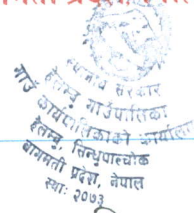 स्थानीय सरकार
हेलम्बु गाउँपालिका
गाउँ कार्यपालिकाको कार्यालय
हेलम्बु, सिन्धुपाल्चोक
बागमती प्रदेश, नेपाल
स्था: २०७३